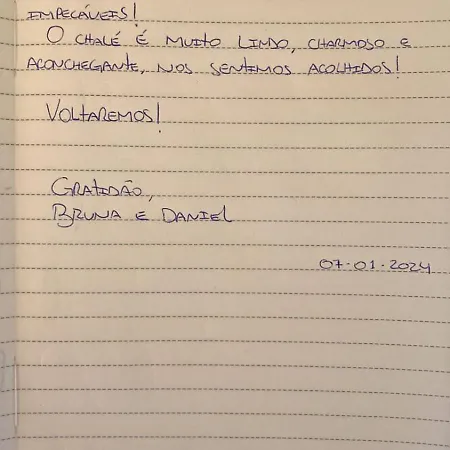 EMPECÁVEIS!
O CHALÉ É MUITO LINDO, CHARMOSO E
ACONCHEGANTE, NOS SENTIMOS ACOLHIDOS!
VOLTAREMOS!
GRATIDÃO,
BRUNA E DANIEL
07-01-2024